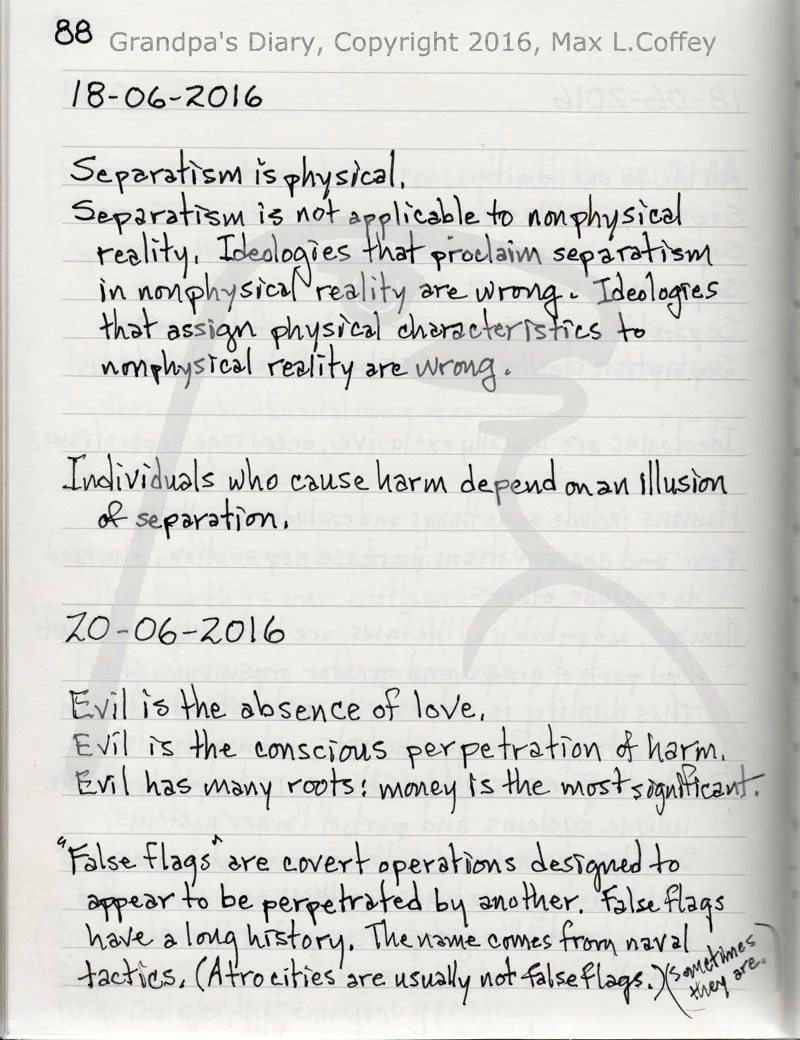 88 Grandpa's Diary, Copyright 2016, Max L.Coffey
18-06-2016
Separatism is physical.
Separatism is not applicable to nonphysical
reality. Ideologies that proclaim separatism
in nonphysical reality are wrong. Ideologies
that assign physical characteristics to
nonphysical reality are wrong.
Individuals who cause harm depend on an illusion
of separation.
20-06-2016
Evil is the absence of love.
Evil is the conscious perpetration of harm.
Evil has many roots: money is the most significant.
"False flags" are covert operations designed to
appear to be perpetrated by another. False flags
have a long history. The name comes from naval
tactics. (Atrocities are usually not false flags.) (Sometimes
they are.)